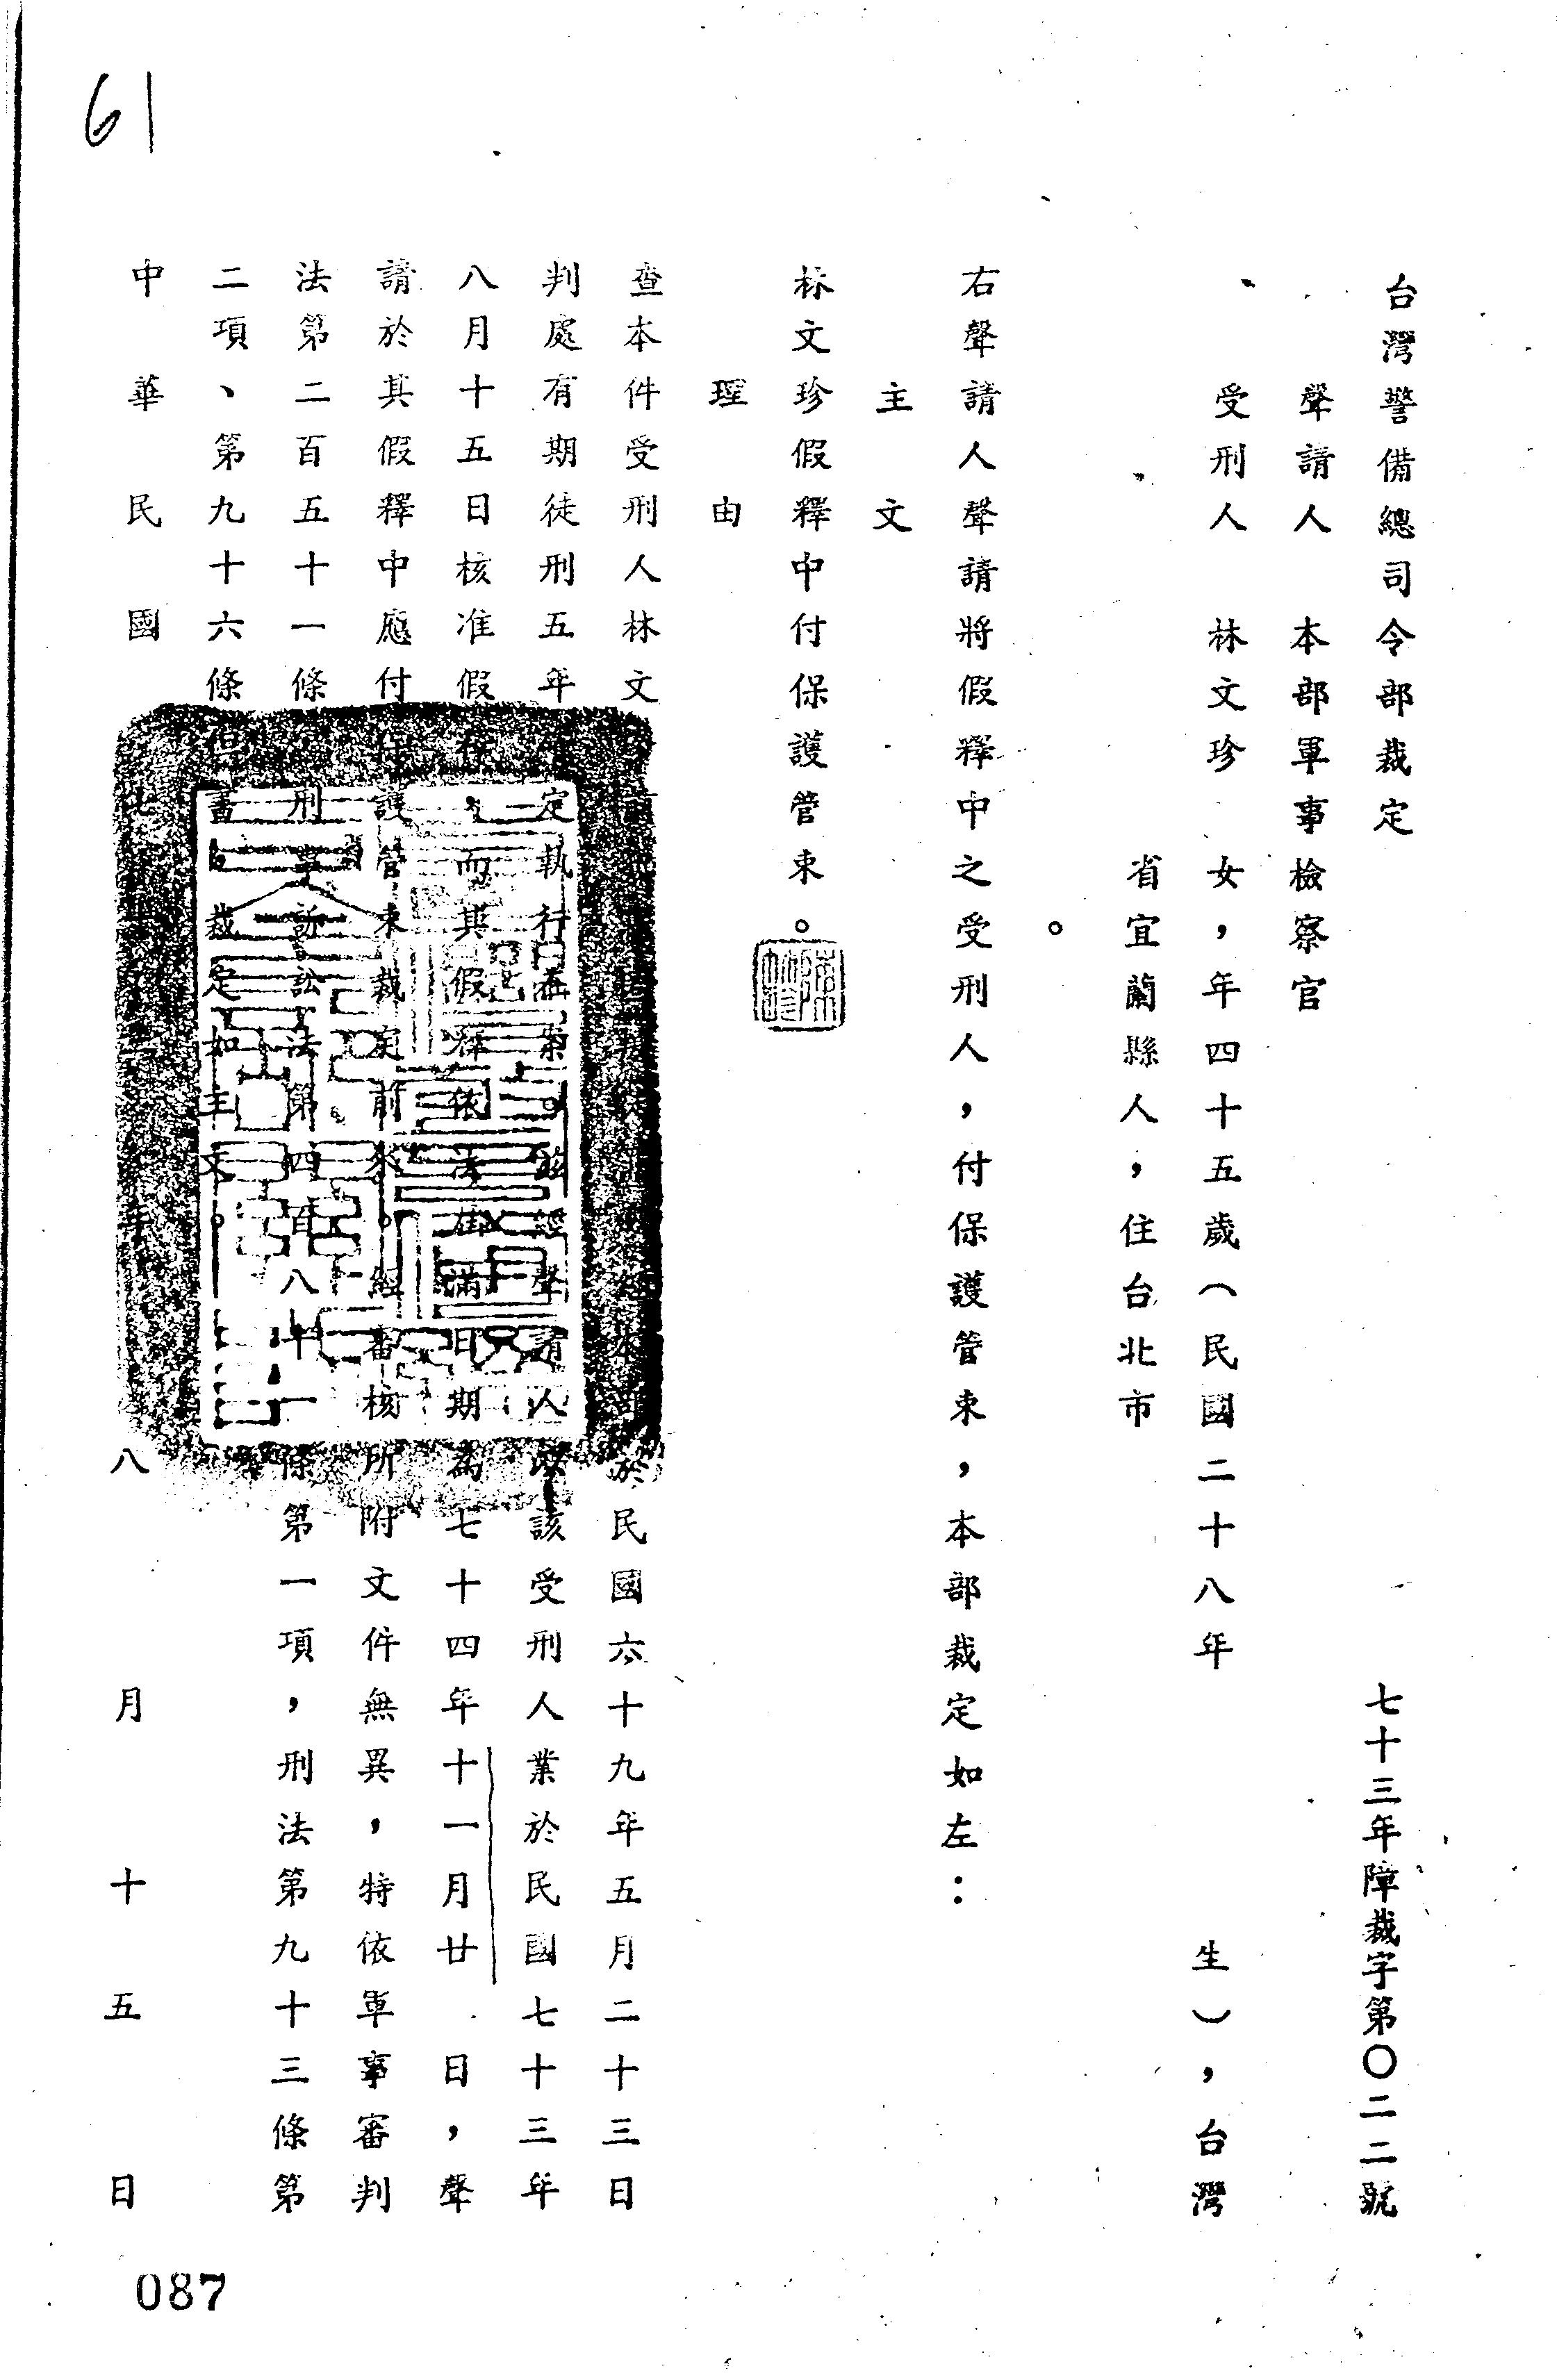 61
台灣警備總司令部裁定 七十三年障裁字第〇二二號
聲請人 本部軍事檢察官
受刑人 林文珍 女，年四十五歲（民國二十八年 生），台灣
省宜蘭縣人，住台北市
。
右聲請人聲請將假釋中之受刑人，付保護管束，本部裁定如左：
主文
林文珍假釋中付保護管束。
理由
查本件受刑人林文 於民國六十九年五月二十三日
判處有期徒刑五年 定執行在案。茲經聲請人以該受刑人業於民國七十三年
八月十五日核准假釋，而其假釋依法在滿日期為七十四年十一月廿 日，聲
請於其假釋中應付保護管束裁定前來。經審核所附文件無異，特依軍事審判
法第二百五十一條 刑事訴訟法第四百八十一條第一項，刑法第九十三條第
二項、第九十六條但書，裁定如主文。
中華民國 年八月十五日
087